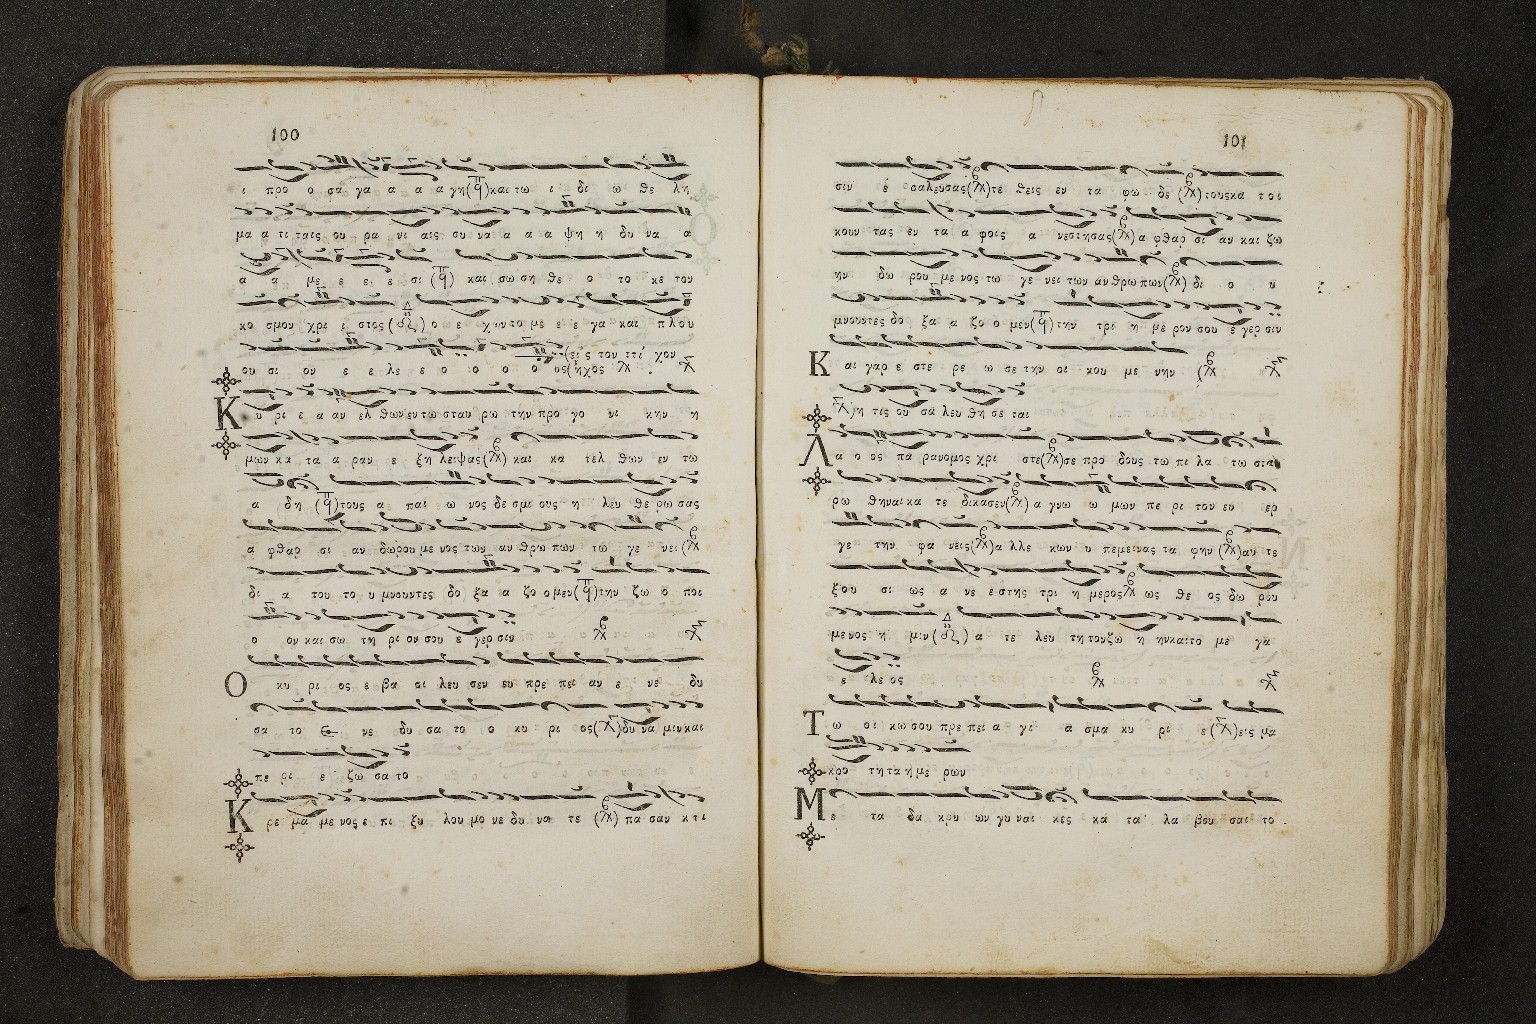 100
ι προ ο σα γα α α α γη και τω ι δι ω θε λη
μα α τι ταις ου ρα νι αις συ να α α α ψη η δυ να α
α α με ε ε ε σι και σω ση θε ο το κε τον
κο σμον χρι ι στος ο ε χωντο με ε ε γα και πλου
ου σι ον ε ε λε ε ο ο ο ο ος (εἰς τον στί χον ἦχος
Κυ ρι ε α αν ελ θων εν τω σταυ ρω την προ γο νι κην η
μων κα τα α ραν ε ξη λειψας και κα τελ θων εν τω
α δη τους α παι ω νος δε σμι ους η λευ θε ρω σας
α φθαρ σι αν δωρου με νος των αν θρω πων τω γε νει
δι α του το υ μνουντες δο ξα α ζο ο μεν την ζω ο ποι
ο ον και σω τη ρι ον σου ε γερ σιν
Ο κυ ρι ος ε βα σι λευ σεν ευ πρε πει αν ε νε δυ
σα το ε νε δυ σα το ο κυ ρι ος δυ να μιν και
πε ρι ε ζω σα το
Κρε μα με νος ε πι ξυ λου μο νε δυ να τε πα σαν κτι
101
σιν ε σαλευσας τε θεις εν τα φω δε τους κα τοι
κουν τας εν τα α φοις α νεστησας α φθαρ σι αν και ζω
ην δω ρου με νος τω γε νει των αν θρω πων δι ο υ
μνουντες δο ξα α ζο ο μεν την τρι η με ρον σου ε γερ σιν
Και γαρ ε στε ρε ω σε την οι κου με νην
η τις ου σα λευ θη σε ται
Λα ο ος πα ρανομος χρι στε σε προ δους τω πι λα τω σταυ
ρω θηναι κα τε δικασεν α γνω ω μων πε ρι τον ευ ερ
γε την φα νεις α λλε κων υ πεμεινας τα φην αυ τε
ξου σι ως α νε ε στης τρι η μερος ως θε ος δω ρου
με νος η μιν α τε λευ τη τον ζω η ην και το με γα
ε λε ος
Τω οι κω σου πρε πει α γι α σμα κυ ρι ε εις μα
κρο τη τα ή με ρων
Με τα δα κρυ ων γυ ναι κες κα τα λα βου σαι το